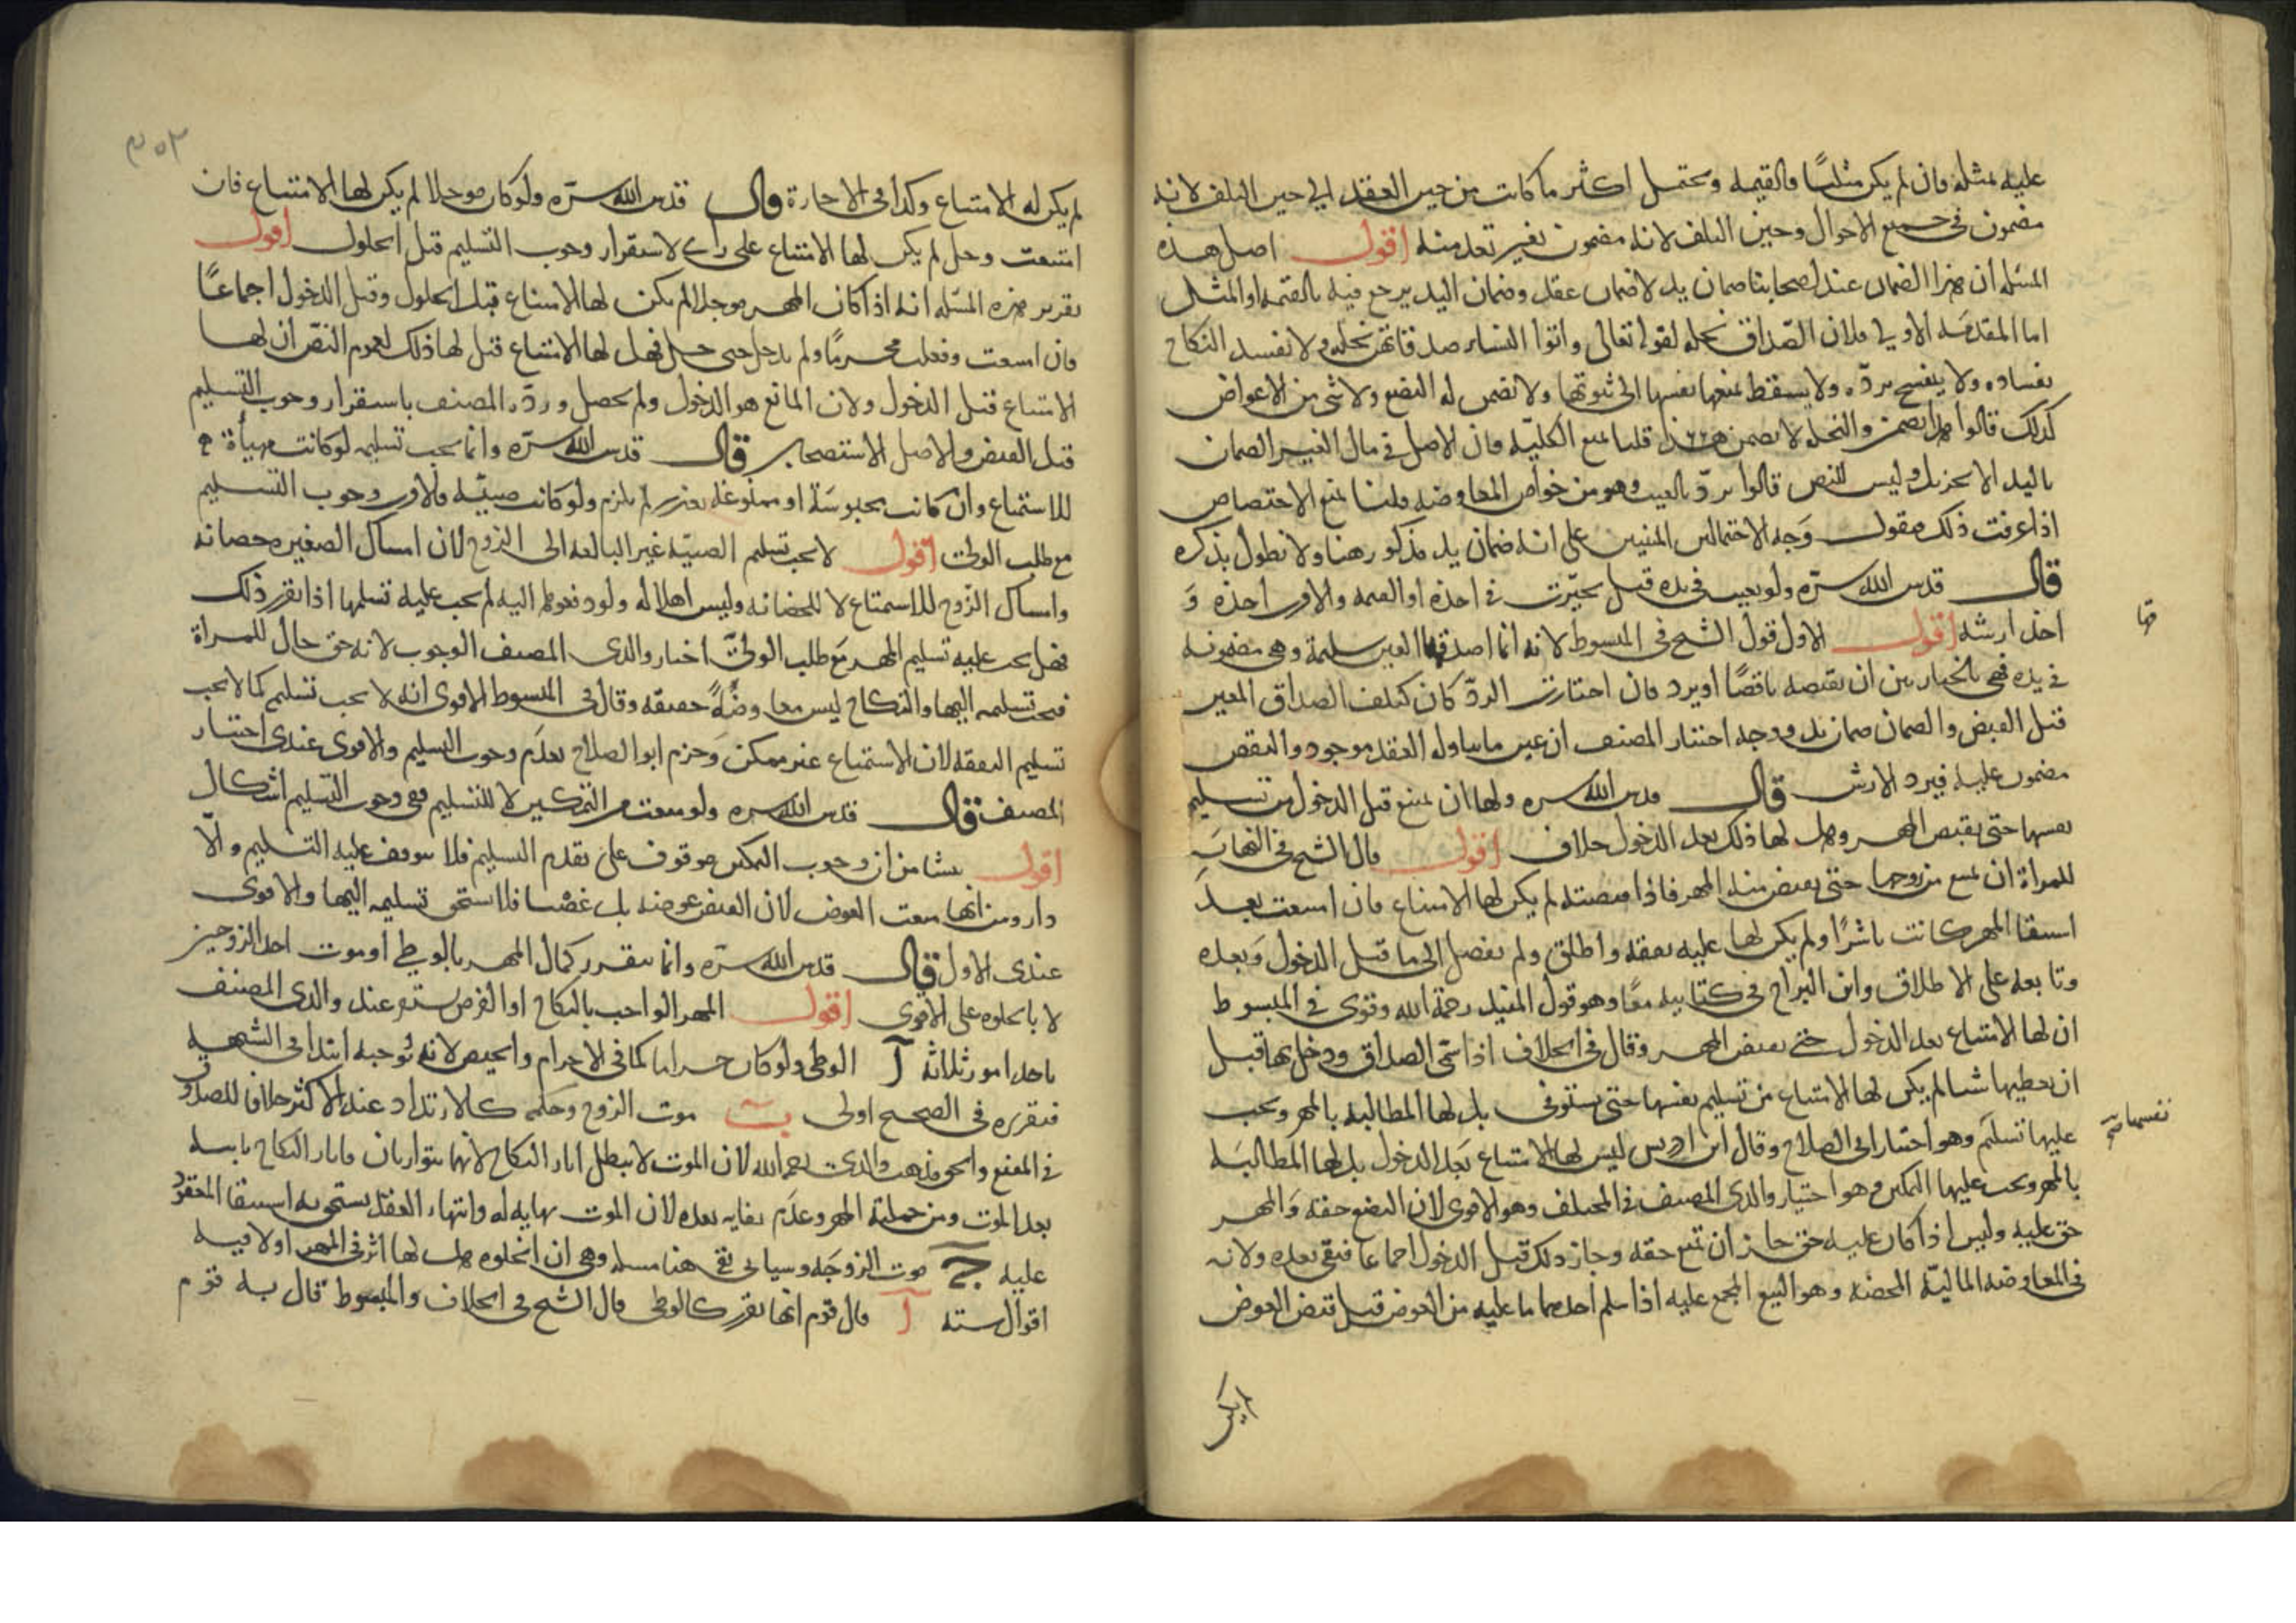 عليه بمثله فان لم يكن مثليًا فالقيمة ويحتمل اكثر ما كانت من حين العقد الى حين التلف لانه
مضمون فى جميع الاحوال وحين التلف لانه مضمون بغير تعد منه اقول اصل هذه
المسئلة ان هذا الضمان عند اصحابنا ضمان يد لا ضمان عقد وضمان اليد يرجع فيه بالقيمة او المثل
اما المقدمة الاولى فلان الصّداق نحلة لقوله تعالى واتوا النساء صدقاتهن نحلة ولا تفسد النكاح
بفساده ولا ينفسخ بردّه ولا يسقط بمنعها نفسها الى ثبوتها ولا تضمن له البضع ولا شئ من الاعواض
كذلك قالوا هذا يضمن والنحلة لا يضمن قلنا بمنع الكلية فان الاصل فى مال الغير الضمان
باليد الا وليس للنص قالوا يردّ بالعيب وهو من خواص المعاوضة قلنا نمنع الاختصاص
اذا عرفت ذلك فنقول وَجه الاحتمالين المبنيين على انه ضمان يد مذكور هنا ولا نطول بذكره
قال قدس الله سرّه ولو تعيب فى يده قيل تخيّرت فى اخذه او القيمة والاقرب اخذه وَ
اخذ ارشه اقول الاول قول الشيخ فى المبسوط لانه انما اصدقها العين سليمة وهى مضمونة
فى يده فهى بالخيار بين ان تقبضه ناقصًا او يرد فان اختارت الردّ كان كتلف الصداق المعين
قبل القبض والضمان ضمان يد ووجه اختيار المصنف ان عين ما تناوله العقد موجود والنقص
مضمون عليه فيرد الارش قال قدس الله سره ولها ان تمنع قبل الدخول من تسليم
نفسها حتى تقبض المهر وهل لها ذلك بعد الدخول خلاف اقول قال الشيخ فى النهايَة
للمرأة ان تمنع من زوجها حتى تقبض منه المهر فاذا قبضته لم يكن لها الامتناع فان امتنعت بعدَ
استيفا المهر كانت ناشزًا ولم يكن لها عليه نفقة واطلق ولم يفصل الى ما قبل الدخول وَبعده
وتابعه على الاطلاق وابن البراج فى كتابيه معًا وهو قول المفيد رحمة الله وقوى فى المبسوط
ان لها الامتناع بعد الدخول حتى تقبض المهر وقال فى الخلاف اذا سمّى الصداق ودخل بها قبل
ان يعطيها شيا لم يكن لها الامتناع من تسليم نفسها حتى يستوفى بل لها المطالبة بالمهر ويجب
عليها تسليم وهو اختيار ابى الصلاح وقال ابن ادريس ليس لها الامتناع بعَد الدخول بل لها المطالبَة
نفسها
بالمهر ويجب عليها التمكين وهو اختيار والدى المصنف فى المختلف وهو الاقوى لان البضع حقه وَالمهر
حق عليه وليس اذا كان عليه حق جاز ان تمنع حقه وجاز ذلك قبل الدخول اجماعا فبقى بعده ولانه
فى المعاوضة الماليّة المحضة وهو البيع المجمع عليه اذا سلم احدهما ما عليه من العوض قبل قبض العوض
لم يكن
لم يكن له الامتناع وكذا فى الاجارة قال قدس الله سرّه ولو كان موجلا لم يكن لها الامتناع فان
امتنعت وحل لم يكن لها الامتناع على راى لاستقرار وجوب التسليم قبل الحلول اقول
تقرير هذه المسئلة انه اذا كان المهر موجلا لم يكن لها الامتناع قبل الحلول وقبل الدخول اجماعًا
فان امتنعت وفعلت محرمًا ولم يدخل حتى حل فهل لها الامتناع قيل لها ذلك لعموم النصّ ان لها
الامتناع قبل الدخول ولان المانع هو الدخول ولم يحصل وردّه المصنف باستقرار وجوب التسليم
قبل القبض والاصل الاستصحاب قال قدس الله سرّه وانما يجب تسليمه لو كانت مهيأة
للاستمتاع وان كانت محبوسَة او ممنوعة بعذر لم يلزم ولو كانت صبيّة فالاقرب وجوب التسليم
مع طلب الولىّ اقول لا يجب تسليم الصبيّة غير البالغة الى الزوج لان امساك الصغيرة حضانة
وامساك الزوج للاستمتاع لا للحضانة وليس اهلا له ولو دفعوها اليه لم يجب عليه تسلمها اذا تقرر ذلك
فهل يجب عليه تسليم المهر مَع طلب الولىّ اختار والدى المصنف الوجوب لانه حق حال للمراة
فيجب تسليمه اليها والنكاح ليس معاوضةً حقيقة وقال فى المبسوط الاقوى انه لا يجب تسليم كما لا يجب
تسليم النفقة لان الاستمتاع غير ممكن وَجزم ابو الصلاح بعدَم وجوب التسليم والاقوى عندى اختيار
المصنف قال قدس الله سره ولو منعت من التمكين لا للتسليم ففى وجوب التسليم اشكال
اقول ينشا من ان وجوب التمكين موقوف على تقدم التسليم فلا يتوقف عليه التسليم والّا
دار ومن انها منعت العوض لان القبض عوضه بل غصْبا فلا استحق تسليمه اليها والاقوى
عندى الاول قال قدس الله سرّه وانما يتقرر كمال المهر بالوطى او موت احد الزوجين
لا بالخلوة على الاقوى اقول المهر الواجب بالنكاح او الفرض يستقر عند والدى المصنف
باحد امور ثلاثة آ الوطى ولو كان حراما كما فى الاحرام والحيض لانه يُوجبه ابتدا فى الشبهة
فتقرره فى الصحيح اولى ب موت الزوج وحكمه كالارتداد عند الاكثر خلافا للصدوق
فى المقنع والحق مذهب والدى رحمه الله لان الموت لا يبطل اثار النكاح لانهما يتوارثان واثار النكاح ثابتة
بعد الموت ومن جملته المهر وعدَم بقايه بعده لان الموت نهاية له وانتهاء العقد يستحق به استيفا المعقود
عليه ج موت الزوجَة وسياتى بقى هنا مسئلة وهى ان الخلوة هل لها اثر فى المهر او لا فيه
اقوال ستة آ قال قوم انها تقرر كالوطى قال الشيخ فى الخلاف والمبسوط قال به قوم